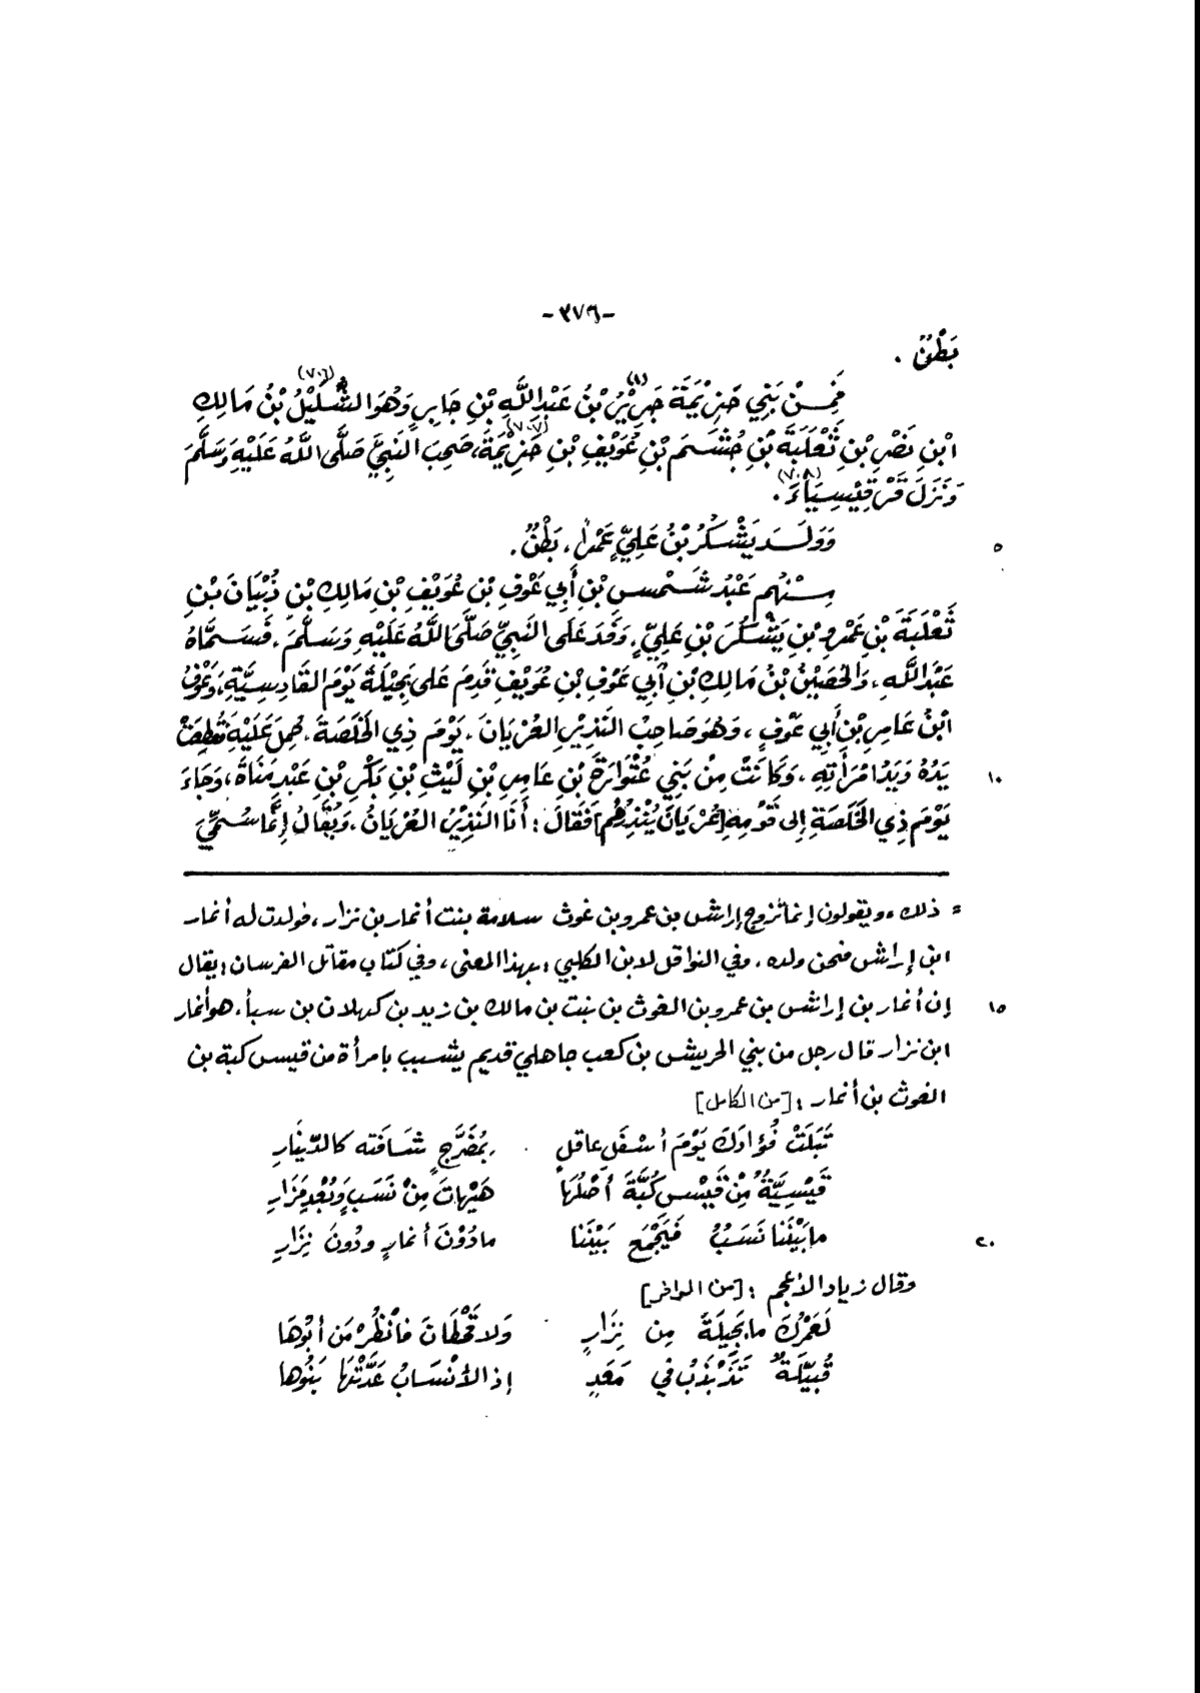 -٣٧٦-
بَطْنٌ .
فَمِنْ بَنِي حَزِيْمَةَ جَرِيْرُ(١) بْنُ عَبْدِ اللَّهِ بْنِ جَابِرٍ وَهُوَ الشَّلِيْلُ(٧٠٦) بْنُ مَالِكِ
ابْنِ نَصْرِ بْنِ ثَعْلَبَةَ بْنِ جُشَمَ بْنِ عُوَيْفِ بْنِ حَزِيْمَةَ(٧٠٧)، صَحِبَ النَّبِيَّ صَلَّى اللَّهُ عَلَيْهِ وَسَلَّمَ
وَنَزَلَ قَرْقِيْسِيَاءَ(٧٠٨) .
وَوَلَدَ يَشْكُرُ بْنُ عَلِيٍّ عَمْراً، بَطْنٌ . ٥
مِنْهُم عَبْدُ شَمْسِ بْنِ أَبِي عَوْفِ بْنِ عُوَيْفِ بْنِ مَالِكِ بْنِ ذُبْيَانَ بْنِ
ثَعْلَبَةَ بْنِ عَمْرِو بْنِ يَشْكُرَ بْنِ عَلِيٍّ، وَفَدَ عَلَى النَّبِيِّ صَلَّى اللَّهُ عَلَيْهِ وَسَلَّمَ، فَسَمَّاهُ
عَبْدَ اللَّهِ، وَالحُصَيْنُ بْنُ مَالِكِ بْنِ أَبِي عَوْفِ بْنِ عُوَيْفٍ قَدِمَ عَلَى بَجِيْلَةَ يَوْمَ القَادِسِيَّةِ، وَعَوْفُ
ابْنُ عَامِرِ بْنِ أَبِي عَوْفٍ، وَهُوَ صَاحِبُ النَّذِيْرِ العُرْيَانَ، يَوْمَ ذِي الخَلَصَةَ، حُمِلَ عَلَيْهِ فَقُطِعَتْ
يَدُهُ وَيَدُ امْرَأَتِهِ، وَكَانَتْ مِنْ بَنِي عُتْوَارَةَ بْنِ عَامِرِ بْنِ لَيْثِ بْنِ بَكْرِ بْنِ عَبْدِ مَنَاةَ، وَجَاءَ ١٠
يَوْمَ ذِي الخَلَصَةِ إلى قَوْمِهِ [عُرْيَانَ يُنْذِرُهُم] فَقَالَ : أَنَا النَّذِيْرُ العُرْيَانُ، وَيُقَالُ إِنَّمَا سُمِّيَ
= ذلك، ويقولون إنما تزوج إراش بن عمرو بن غوث سلامة بنت أنمار بن نزار، فولدت له أنمار
ابن إراش فنحن ولده. وفي النواقل لابن الكلبي : بهذا المعنى، وفي كتاب مقاتل الفرسان : يقال
إن أنمار بن إراش بن عمرو بن الغوث بن نبت بن مالك بن زيد بن كهلان بن سبأ، هو أنمار ١٥
ابن نزار قال رجل من بني الحريش بن كعب جاهلي قديم يشبب بامرأة من قيس كبة بن
الغوث بن أنمار : [من الكامل]
تَبَلَتْ فُؤادَكَ يَوْمَ أسْفَلِ عاقلٍ بمُضَرَّجٍ شَافَته كالدِّيْنَارِ
قَيْسِيَّةٌ مِنْ قَيْسِ كُبَّةَ أصْلُهَا هَيْهَاتَ مِنْ نَسَبٍ وَبُعْدِ مَزَارِ
ما بَيْنَنَا نَسَبٌ فَيَجْمَعَ بَيْنَنَا مادُوْنَ أنمارٍ ودُونَ نِزَارِ ٢٠
وقال زياد الأعجم : [من الوافر]
لَعَمْرُكَ ما بَجِيلَةَ مِن نِزَارٍ وَلا قَحْطَانَ فانْظُرْ مَن أبُوْهَا
قُبَيِّلَةٌ تَذَبْذَبُ في مَعَدٍ إذ الأَنْسَابُ عَدَّتْهَا بَنُوها